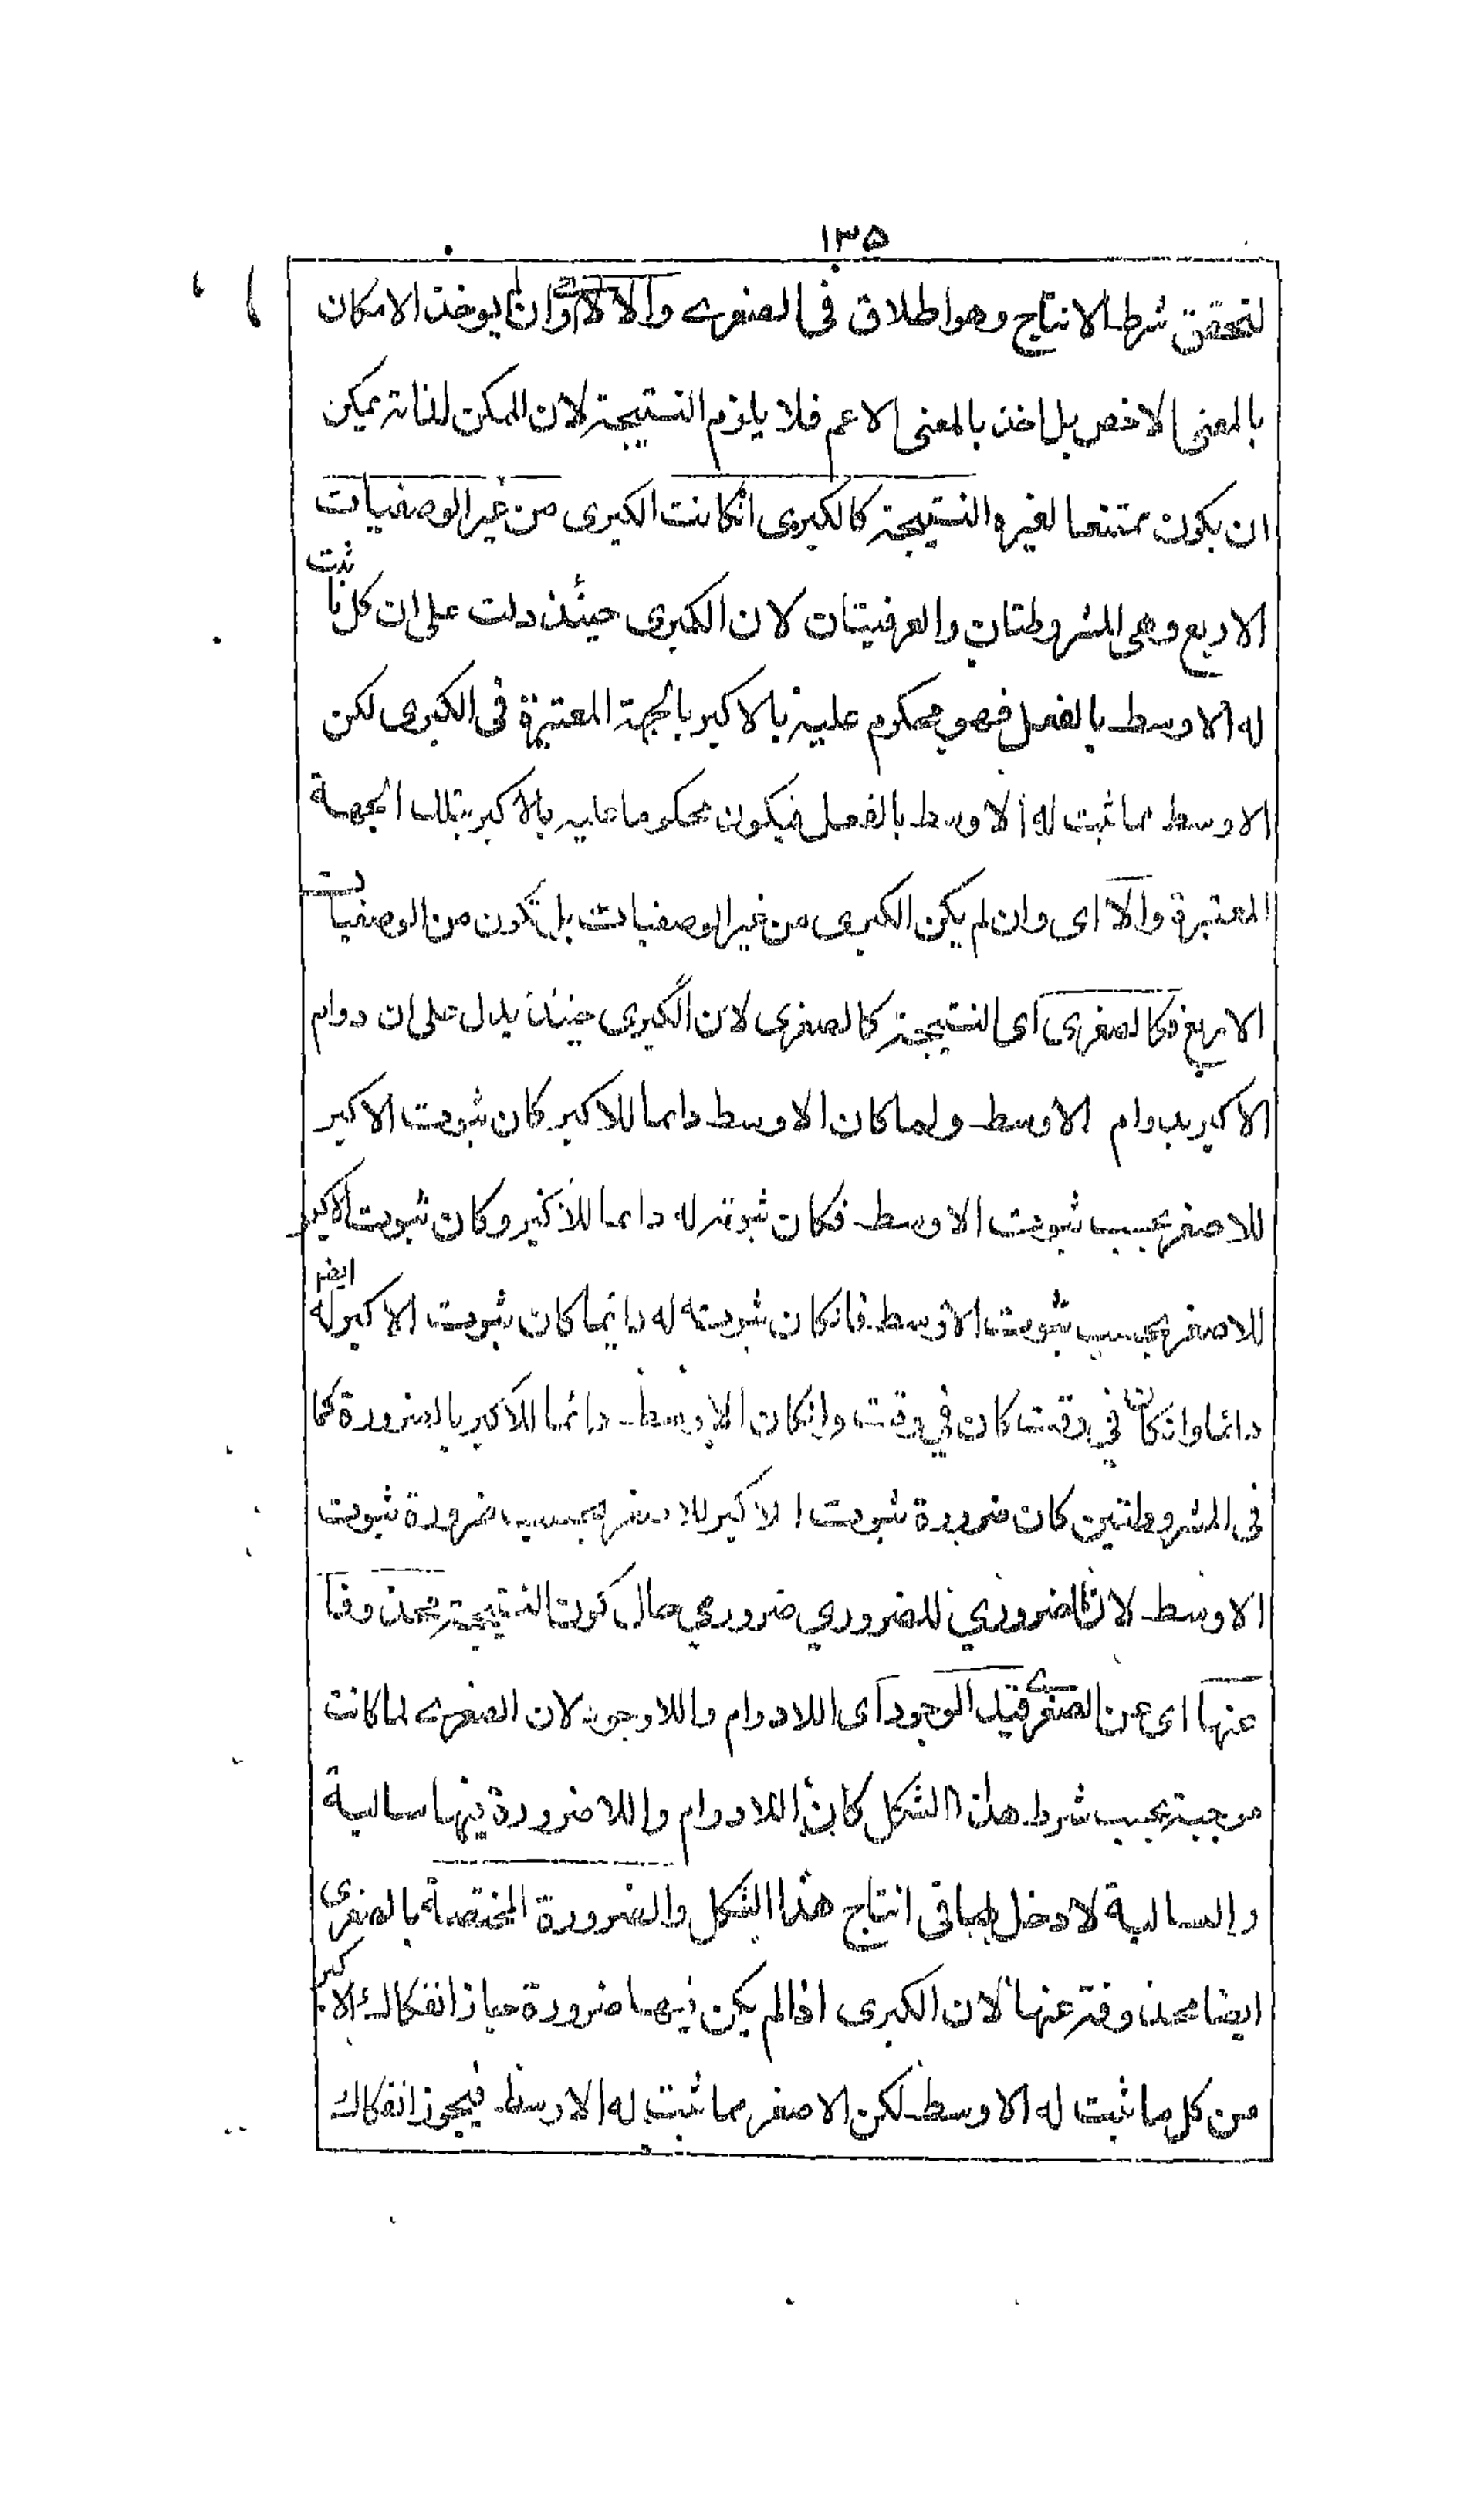 ١٣٥
لتحقق شرط الانتاج وهو اطلاق فى الصغرے والا لا اى وان لم يوخذ الامكان
بالمعنى الاخص بل اخذ بالمعنى الاعم فلا يلزم النتيجة لان الممكن لذاته يمكن
ان يكون ممتنعا لغيره والنتيجة كالكبرى انكانت الكبرى من غير الوصفيات
الاربع وهى المشروطتان والعرفيتان لان الكبرى حينئذ دلت على ان كل ما ثبت
له الاوسط بالفعل فهو محكوم عليه بالاكبر بالجهة المعتبرة فى الكبرى لكن
الاوسط مما ثبت له الاوسط بالفعل فيكون محكوما عليه بالاكبر بتلك الجهة
المعتبرة والا اى وان لم يكن الكبرى من غير الوصفيات بل تكون من الوصفيات
الاربع فكالصغرى اى النتيجة كالصغرى لان الكبرى حينئذ يدل على ان دوام
الاكبر بدوام الاوسط ولما كان الاوسط دائما للاكبر كان ثبوت الاكبر
للاصغر بحسب ثبوت الاوسط فكان ثبوته له دائما للاكبر وكان ثبوت الاكبر
للاصغر بحسب ثبوت الاوسط فانكان ثبوته له دائما كان ثبوت الاكبر له ايضا
دائما وانكان فى وقت كان في وقت وانكان الاوسط دائما للاكبر بالضرورة كما
فى المشروطتين كان ضرورة ثبوت الاكبر للاصغر بحسب ضرورة ثبوت
الاوسط لان الضروري للضروري ضروري حال كون النتيجة محذوفا
عنها اى عن الصغرى قيد الوجود اى اللادوام واللاوجود لان الصغرے لما كانت
موجبة بحسب شرط هذا الشكل كان اللادوام واللاضرورة فيها سالبة
والسالبة لا دخل لها فى انتاج هذا الشكل والضرورة المختصة بالصغرى
ايضا محذوفة عنها لان الكبرى اذا لم يكن فيها ضرورة جاز انفكاك الاكبر
من كل ما ثبت له الاوسط لكن الاصغر مما ثبت له الاوسط فيجوز انفكاك